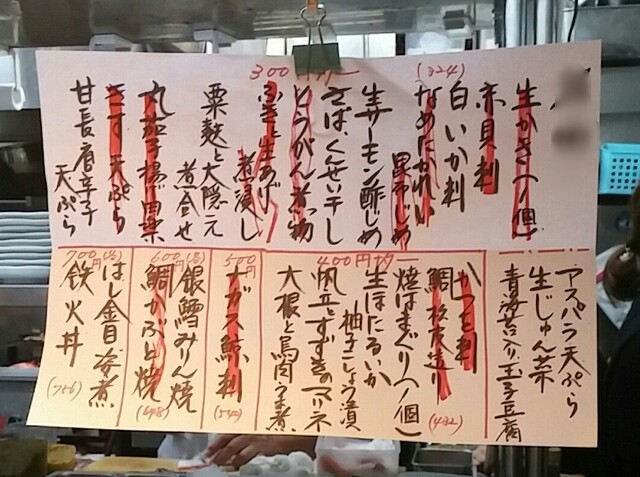 300円均一
(324)
生かき(一個)
赤貝刺
白いか刺
なめたかれい
昆布じめ
生サーモン酢じめ
さばくんせい干し
とうがん煮物
ふきと生あげ
煮浸し
粟麩と大隠元
煮合せ
丸茄子揚げ田楽
きす天ぷら
甘長唐辛子
天ぷら
アスパラ天ぷら
生じゅん菜
青海苔入り玉子豆腐
400円均一
かつを刺
鯛松皮造り
(432)
焼はまぐり(一個)
生ほたるいか
柚子こしょう漬
帆立とすずきのマリネ
大根と鳥肉うま煮
500円
ナガス鯨刺
(540)
600円(各)
銀鱈みりん焼
鯛かぶと焼
(648)
700円(各)
はし金目姿煮
鉄火丼
(756)